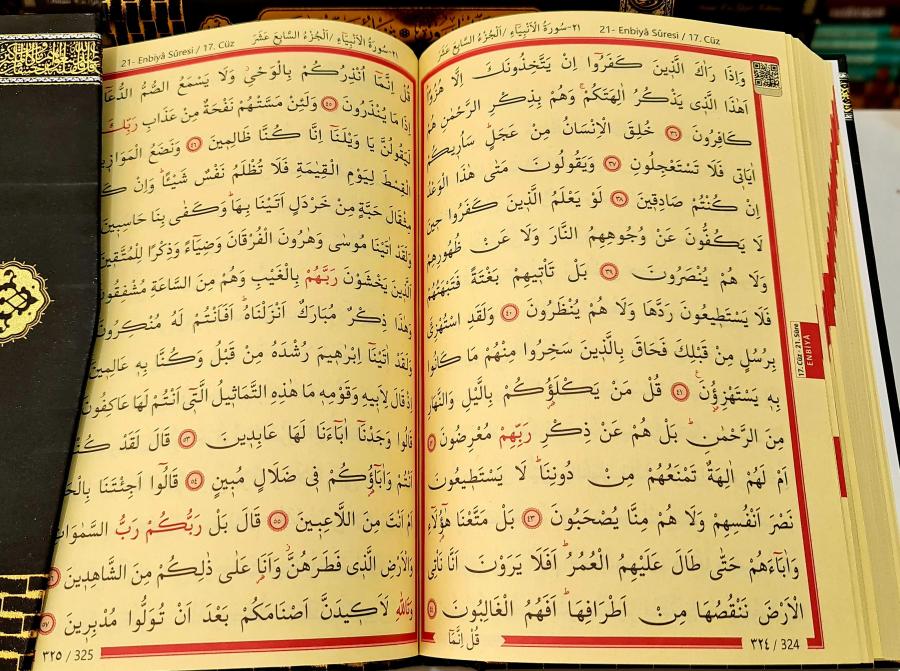 21- Enbiyâ Sûresi / 17. Cüz
٢١-سُورَةُ الْاَنْبِيَٓاءِ /اَلْجُزْءُ السَّابِعَ عَشَرَ
وَاِذَا رَاٰكَ الَّذ۪ينَ كَفَرُٓوا اِنْ يَتَّخِذُونَكَ اِلَّا هُزُوًا
اَهٰذَا الَّذ۪ي يَذْكُرُ اٰلِهَتَكُمْ وَهُمْ بِذِكْرِ الرَّحْمٰنِ هُمْ
كَافِرُونَ ٣٦ خُلِقَ الْاِنْسَانُ مِنْ عَجَلٍ سَاُر۪يكُمْ
اٰيَات۪ي فَلَا تَسْتَعْجِلُونِ ٣٧ وَيَقُولُونَ مَتٰى هٰذَا الْوَعْدُ
اِنْ كُنْتُمْ صَادِق۪ينَ ٣٨ لَوْ يَعْلَمُ الَّذ۪ينَ كَفَرُوا ح۪ينَ
لَا يَكُفُّونَ عَنْ وُجُوهِهِمُ النَّارَ وَلَا عَنْ ظُهُورِهِمْ
وَلَا هُمْ يُنْصَرُونَ ٣٩ بَلْ تَأْت۪يهِمْ بَغْتَةً فَتَبْهَتُهُمْ
فَلَا يَسْتَط۪يعُونَ رَدَّهَا وَلَا هُمْ يُنْظَرُونَ ٤٠ وَلَقَدِ اسْتُهْزِئَ
بِرُسُلٍ مِنْ قَبْلِكَ فَحَاقَ بِالَّذ۪ينَ سَخِرُوا مِنْهُمْ مَا كَانُوا
بِه۪ يَسْتَهْزِؤُ۫نَ ٤١ قُلْ مَنْ يَكْلَؤُ۬كُمْ بِالَّيْلِ وَالنَّهَارِ
مِنَ الرَّحْمٰنِ بَلْ هُمْ عَنْ ذِكْرِ رَبِّهِمْ مُعْرِضُونَ
اَمْ لَهُمْ اٰلِهَةٌ تَمْنَعُهُمْ مِنْ دُونِنَا لَا يَسْتَط۪يعُونَ
نَصْرَ اَنْفُسِهِمْ وَلَا هُمْ مِنَّا يُصْحَبُونَ ٤٣ بَلْ مَتَّعْنَا هٰٓؤُ۬لَٓاءِ
وَاٰبَٓاءَهُمْ حَتّٰى طَالَ عَلَيْهِمُ الْعُمُرُ اَفَلَا يَرَوْنَ اَنَّا نَأْتِي
الْاَرْضَ نَنْقُصُهَا مِنْ اَطْرَافِهَا اَفَهُمُ الْغَالِبُونَ
قُلْ اِنَّمَٓا
٣٢٤ / 324
17. Cüz - 21. Sûre
ENBİYÂ
21- Enbiyâ Sûresi / 17. Cüz
٢١-سُورَةُ الْاَنْبِيَٓاءِ /اَلْجُزْءُ السَّابِعَ عَشَرَ
قُلْ اِنَّمَٓا اُنْذِرُكُمْ بِالْوَحْيِ وَلَا يَسْمَعُ الصُّمُّ الدُّعَٓاءَ
اِذَا مَا يُنْذَرُونَ ٤٥ وَلَئِنْ مَسَّتْهُمْ نَفْحَةٌ مِنْ عَذَابِ رَبِّكَ
لَيَقُولُنَّ يَا وَيْلَنَٓا اِنَّا كُنَّا ظَالِم۪ينَ ٤٦ وَنَضَعُ
الْقِسْطَ لِيَوْمِ الْقِيٰمَةِ فَلَا تُظْلَمُ نَفْسٌ شَيْـًٔا وَاِنْ
مِثْقَالَ حَبَّةٍ مِنْ خَرْدَلٍ اَتَيْنَا بِهَا وَكَفٰى بِنَا حَاسِب۪ينَ
وَلَقَدْ اٰتَيْنَا مُوسٰى وَهٰرُونَ الْفُرْقَانَ وَضِيَٓاءً وَذِكْرًا لِلْمُتَّق۪ينَ
اَلَّذ۪ينَ يَخْشَوْنَ رَبَّهُمْ بِالْغَيْبِ وَهُمْ مِنَ السَّاعَةِ مُشْفِقُونَ
وَهٰذَا ذِكْرٌ مُبَارَكٌ اَنْزَلْنَاهُ اَفَاَنْتُمْ لَهُ مُنْكِرُونَ
وَلَقَدْ اٰتَيْنَٓا اِبْرٰه۪يمَ رُشْدَهُ مِنْ قَبْلُ وَكُنَّا بِه۪ عَالِم۪ينَ
اِذْ قَالَ لِاَب۪يهِ وَقَوْمِه۪ مَا هٰذِهِ التَّمَاث۪يلُ الَّت۪ٓي اَنْتُمْ لَهَا عَاكِفُونَ
قَالُوا وَجَدْنَٓا اٰبَٓاءَنَا لَهَا عَابِد۪ينَ ٥٣ قَالَ لَقَدْ كُنْتُمْ
اَنْتُمْ وَاٰبَٓاؤُ۬كُمْ ف۪ي ضَلَالٍ مُب۪ينٍ ٥٤ قَالُٓوا اَجِئْتَنَا
اَمْ اَنْتَ مِنَ اللَّاعِب۪ينَ ٥٥ قَالَ بَلْ رَبُّكُمْ رَبُّ السَّمٰوَاتِ
وَالْاَرْضِ الَّذ۪ي فَطَرَهُنَّ وَاَنَا۬ عَلٰى ذٰلِكُمْ مِنَ الشَّاهِد۪ينَ
وَتَاللّٰهِ لَاَك۪يدَنَّ اَصْنَامَكُمْ بَعْدَ اَنْ تُوَلُّوا مُدْبِر۪ينَ ٥٧
٣٢٥ / 325